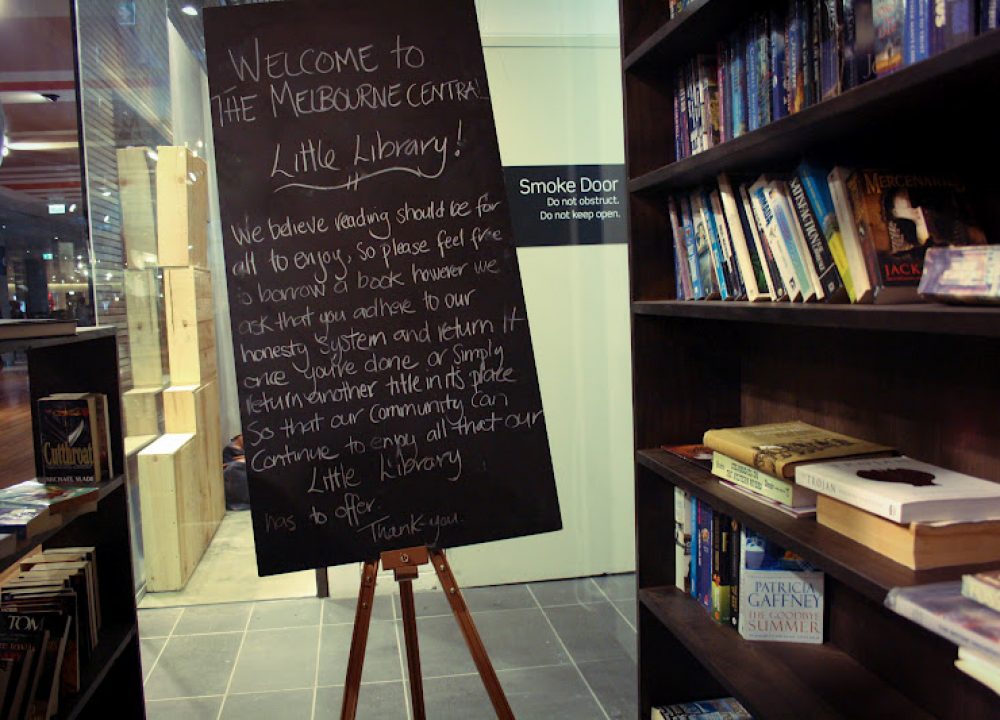 WELCOME to
THE MELBOURNE CENTRAL
Little Library!
We believe reading should be for
all to enjoy, So please feel free
to borrow a book however we
ask that you adhere to our
honesty system and return it
once you're done or simply
return another title in its place
So that our community can
Continue to enjoy all that our
Little Library
has to offer.
Thank-you.
Smoke Door
Do not obstruct.
Do not keep open.
MERCENARIES
JACK
SATISFACTION
Cutthroat
MICHAEL SLADE
TOM
TROJAN
PATRICIA
GAFFNEY
THE GOODBYE
SUMMER